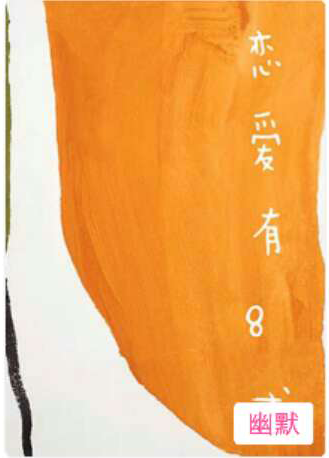 恋爱有8
幽默